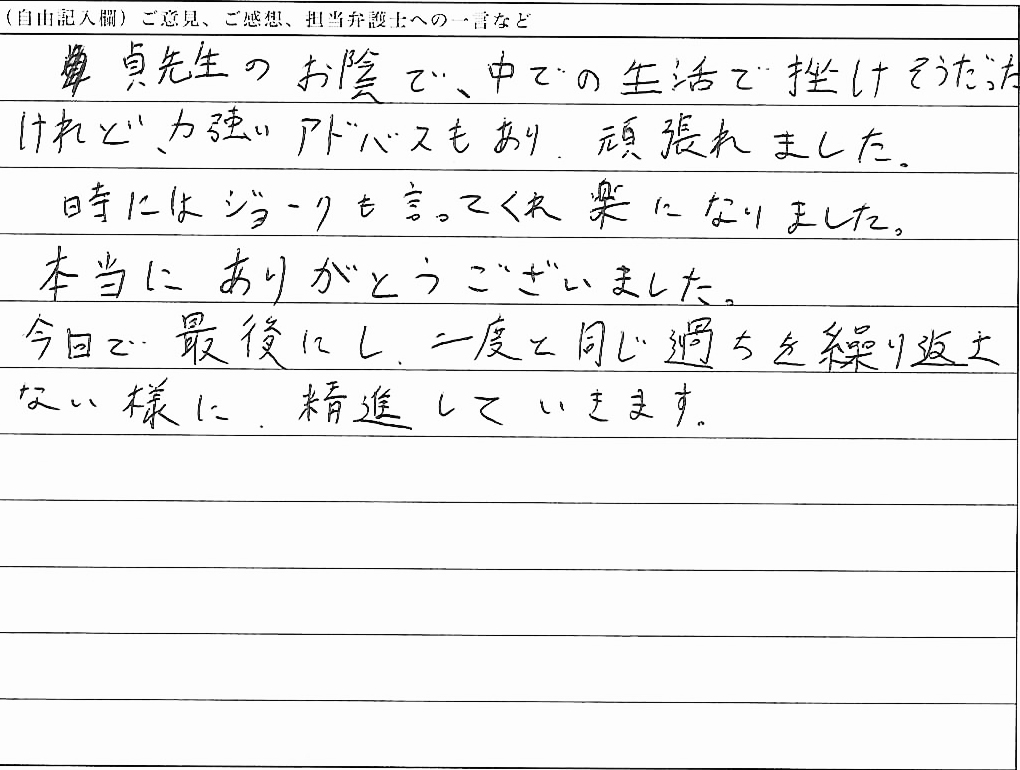 (自由記入欄)ご意見、ご感想、担当弁護士への一言など
貞先生のお陰で、中での生活で挫けそうだった
けれど、力強いアドバスもあり、頑張れました。
時にはジョークも言ってくれ楽になりました。
本当にありがとうございました。
今回で最後にし、二度と同じ過ちを繰り返さ
ない様に、精進していきます。